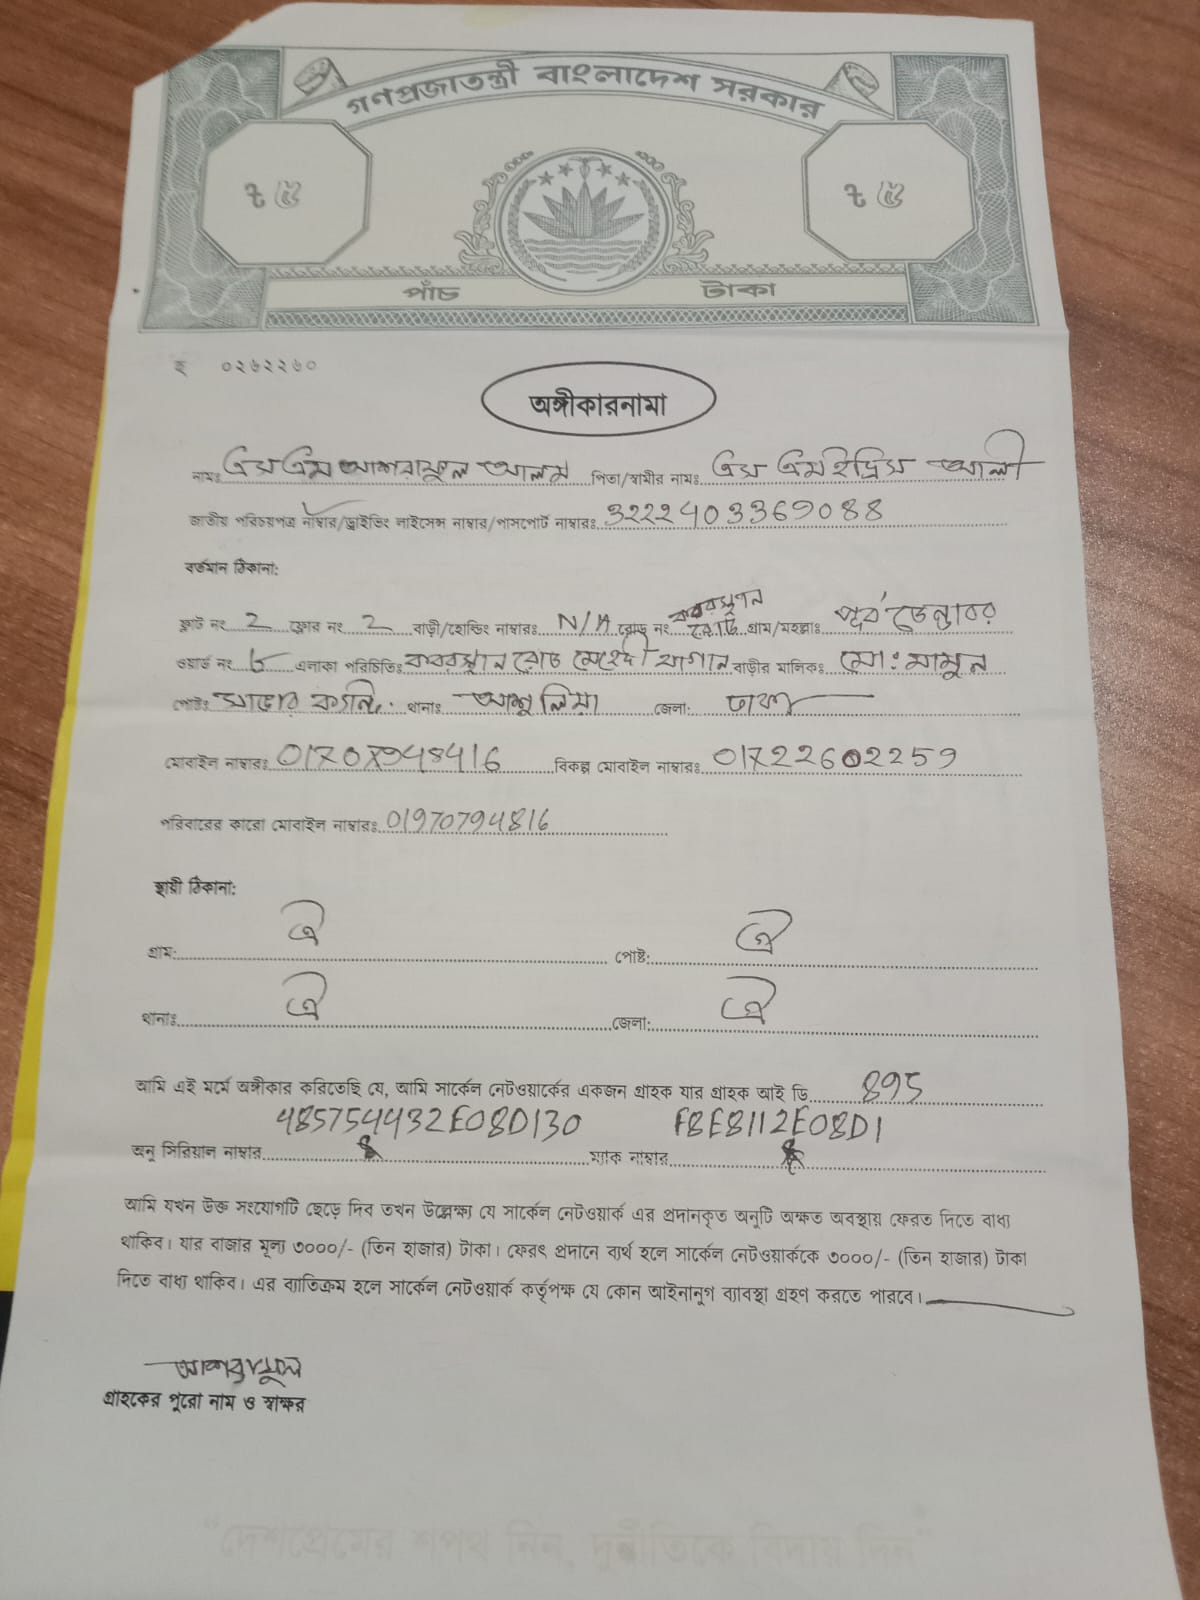 গণপ্রজাতন্ত্রী বাংলাদেশ সরকার
৳ ৫ ৳ ৫
পাঁচ টাকা
হ ০২৬২২৬০
অঙ্গীকারনামা
নামঃ এস এম আশরাফুল আলম পিতা/স্বামীর নামঃ এস এম ইদ্রিস আলী
জাতীয় পরিচয়পত্র নাম্বার/ড্রাইভিং লাইসেন্স নাম্বার/পাসপোর্ট নাম্বারঃ
বর্তমান ঠিকানা:
ফ্লাট নং 2 ফ্লোর নং 2 বাড়ী/হোল্ডিং নাম্বারঃ N/A রোড নং কবরস্থান রোড গ্রাম/মহল্লাঃ পূর্ব ডেন্ডাবর
ওয়ার্ড নং ৮ এলাকা পরিচিতিঃ কবরস্থান রোড মেহেদী বাগান বাড়ীর মালিকঃ মো: মামুন
পোষ্টঃ সাভার ক্যান্ট. থানাঃ আশুলিয়া জেলা: ঢাকা
মোবাইল নাম্বারঃ বিকল্প মোবাইল নাম্বারঃ 01722602259
পরিবারের কারো মোবাইল নাম্বারঃ 01970794816
স্থায়ী ঠিকানা:
গ্রাম: ঐ পোষ্ট: ঐ
থানাঃ ঐ জেলা: ঐ
আমি এই মর্মে অঙ্গীকার করিতেছি যে, আমি সার্কেল নেটওয়ার্কের একজন গ্রাহক যার গ্রাহক আই ডি 895
485754432E08D130 F8E8112E08D1
অনু সিরিয়াল নাম্বার ম্যাক নাম্বার
আমি যখন উক্ত সংযোগটি ছেড়ে দিব তখন উল্লেক্ষ্য যে সার্কেল নেটওয়ার্ক এর প্রদানকৃত অনুটি অক্ষত অবস্থায় ফেরত দিতে বাধ্য
থাকিব। যার বাজার মূল্য ৩০০০/- (তিন হাজার) টাকা। ফেরৎ প্রদানে ব্যর্থ হলে সার্কেল নেটওয়ার্ককে ৩০০০/- (তিন হাজার) টাকা
দিতে বাধ্য থাকিব। এর ব্যাতিক্রম হলে সার্কেল নেটওয়ার্ক কর্তৃপক্ষ যে কোন আইনানুগ ব্যাবস্থা গ্রহণ করতে পারবে।
আশরাফুল
গ্রাহকের পুরো নাম ও স্বাক্ষর
"দেশপ্রেমের শপথ নিন, দুর্নীতিকে বিদায় দিন"